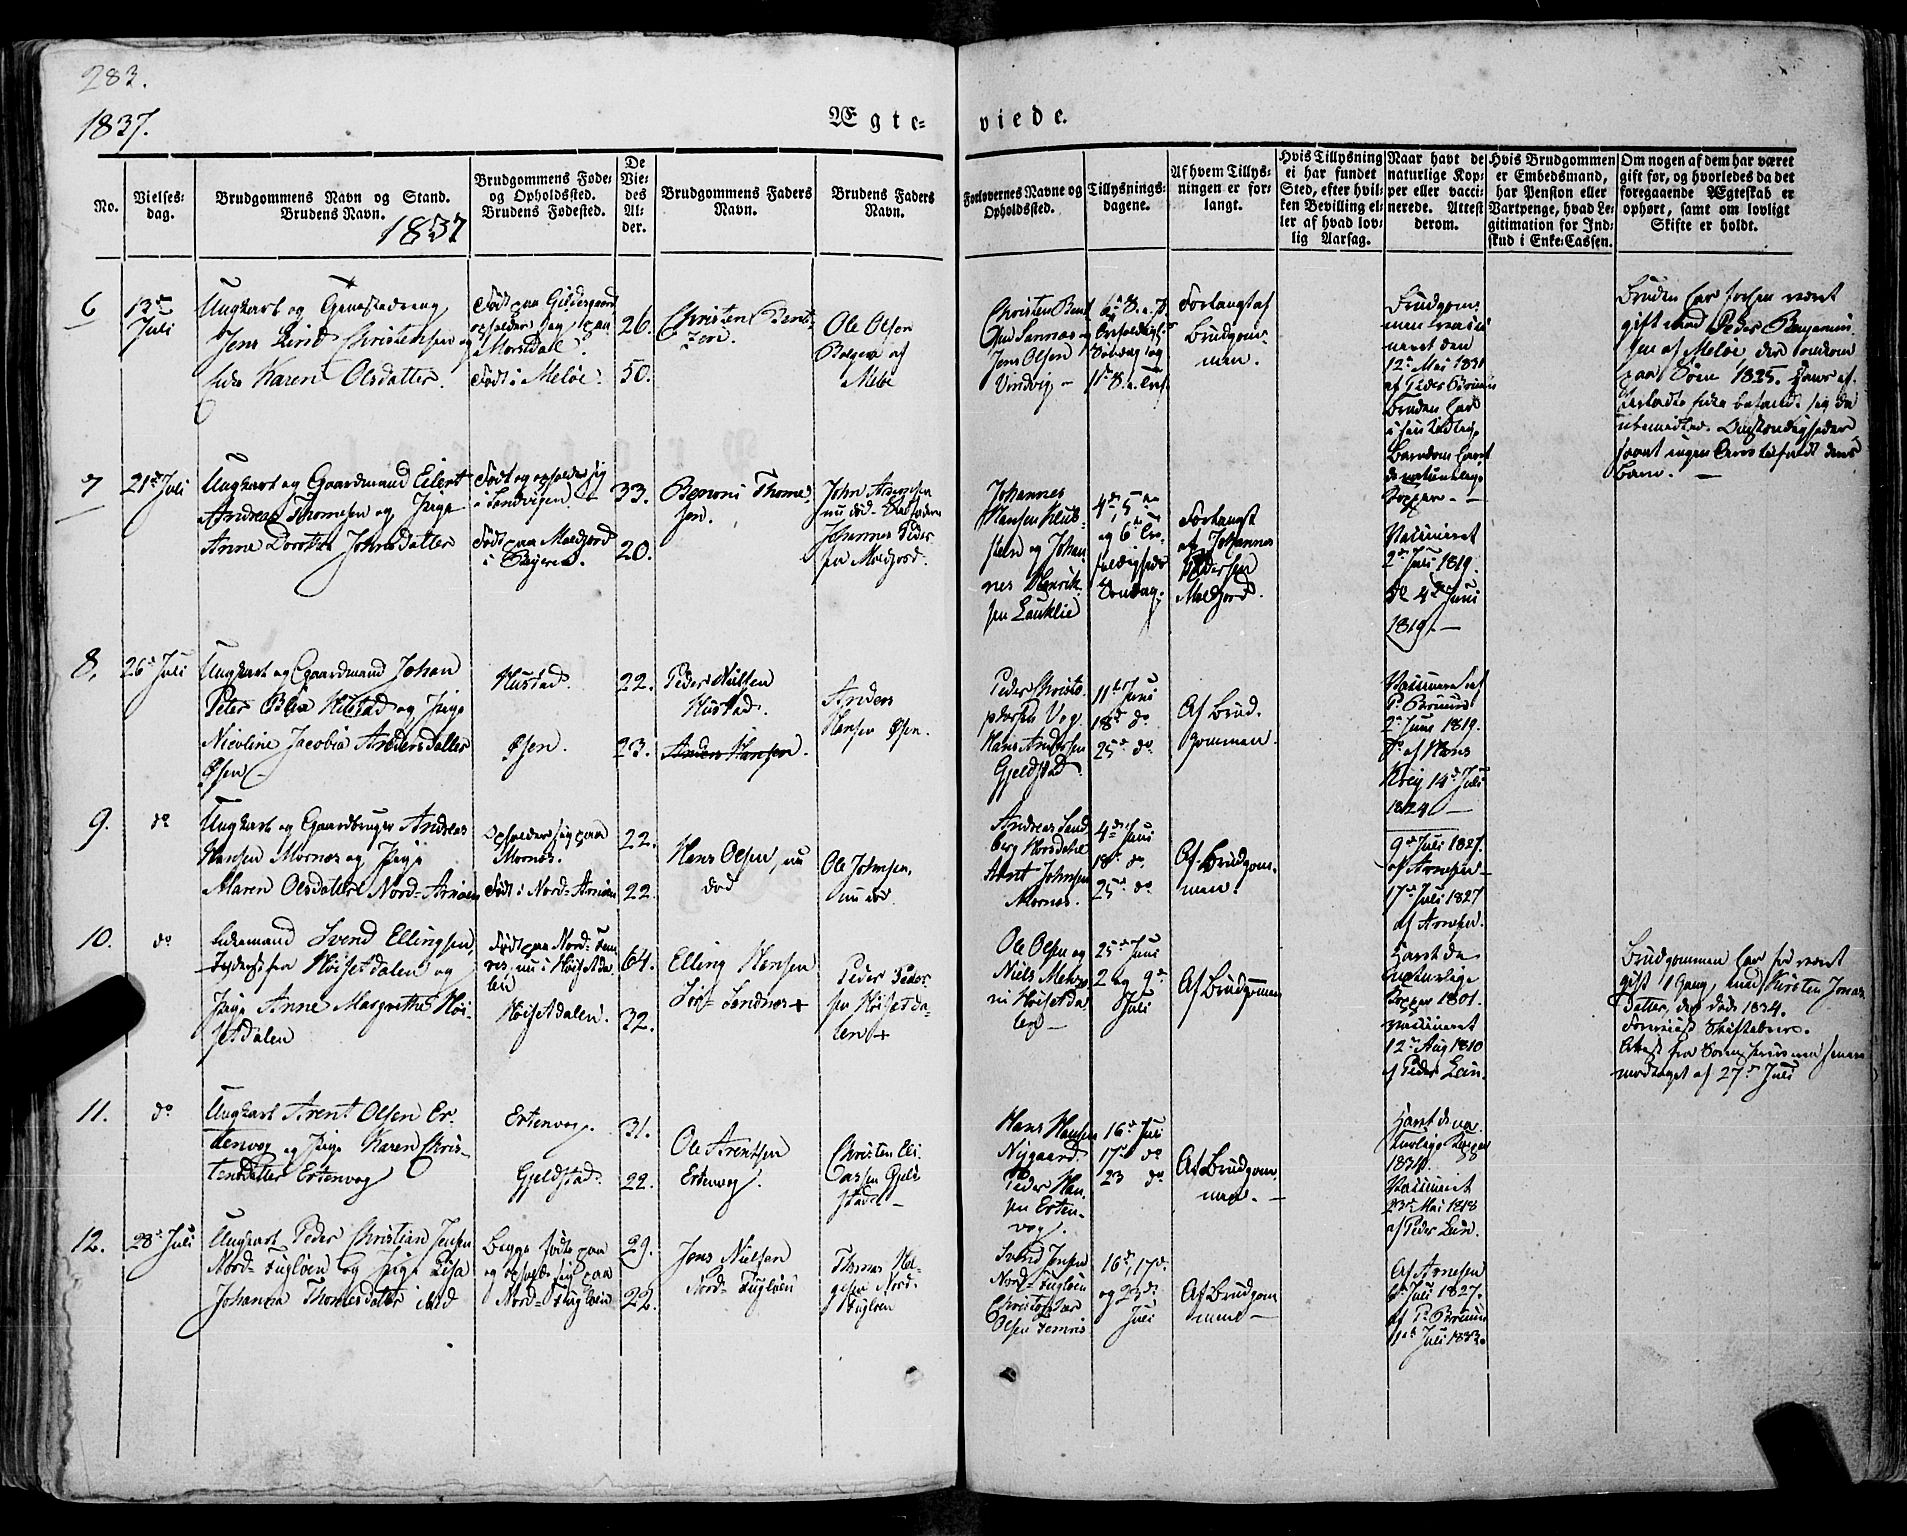 283.
1837.
Ægte-
viede.
No.
Vielses-
dag.
Brudgommens Navn og Stand.
Brudens Navn.
1837
Brudgommens Føde-
og Opholdssted.
Brudens Fødested.
De
Vie-
des
Al-
der.
Brudgommens Faders
Navn.
Brudens Faders
Navn.
Forlovernes Navne og
Opholdssted.
Tillysnings-
dagene.
Af hvem Tillys-
ningen er for-
langt.
Hvis Tillysning
ei har fundet
Sted, efter hvil-
ken Bevilling el-
ler af hvad lov-
lig Aarsag.
Naar havt de
naturlige Kop-
per eller vacci-
nerede. Attest
derom.
Hvis Brudgommen
er Embedsmand,
har Pension eller
Vartpenge, hvad Le-
gitimation for Ind-
skud i Enke-Cassen.
Om nogen af dem har været
gift før, og hvorledes da det
foregaaende Ægteskab er
ophørt, samt om lovligt
Skifte er holdt.
6
13de
Juli
Ungkarl og
Jens Lind Christensen og
Enke Karen Olsdatter.
Født paa Gildesgaard
opholder sig paa
Morsdal.
Født i Meløe.
26.
50.
Christen Bent-
sen.
Ole Olsen
Bolgen af
Meløe
Christen Bent
Sannæs og
Jens Olsen
Vindvig. -
Forlangt af
Brudgom-
men.
Brudgom-
men vacci-
neret den
12te Mai 1831
af Peder
Bruden havt
i sin
Barndom havt
de naturlige
Kopper. -
Bruden har forhen været
gift med Peder Benjamin-
sen af Meløe der omkom
paa Søen 1825.
Barn. -
7
21de Juli
Ungkarl og Gaardmand Eilert
Andreas Thomesen og Pige
Anne Dorothea Johnsdatter
Født og opholder sig
i Sandvigen -
Født paa Meldfjord
i Beieren.
33.
20.
Benoni Thome-
sen.
John Arnesen
nu død -
Johannes Peder-
sen Meldfjord.
Johannes
Hansen
og Johan-
nes Henrik-
sen Lauklie
4de, 5te
og 6te Tre-
foldigheds
Søndag.
Forlangt
af Johannes
Pedersen
Meldfjord.
Vaccineret
2den Juli 1819.
do 4de Juni
1819. -
8.
26de Juli
Ungkarl og Gaardmand Johan
Peter Hustad og Pige
Nicoline Jacobia Andersdatter
Øsen -
Hustad.
Øsen.
22.
23.
Peder Nilsen
Hustad.
Anders Hansen.
Anders
Hansen Øsen.
Peder Christo-
phersen Vog.
Hans Andersen
Gjeldstad.
11te Juni
18de do
25de do
Af Brud-
gommen.
Vaccineret af
P. Bruun
2den Juni 1819.
do af Mons
14de Juli
1824 -
9.
do
Ungkarl og Gaardbruger Andreas
Hansen Mornæs og Pige
Maren Olsdatter Nord-Arnøen
Opholder sig paa
Mornæs.
Født i Nord-Arnøen
22.
22.
Hans Olsen, nu
død
Ole Johnsen,
nu død.
Andreas Sand-
berg Horsdahl
Arnt Johnsen
Mornæs.
4de Juni
18de do
25de do
Af Brudgom-
men.
9de Juli 1827.
af Arnesen -
17de Juli 1827
af Arnesen.
10.
do
Enkemand Svend Ellingsen,
Høisetdalen og
Pige Anne Margrethe Høi-
setdalen
Født paa Nord-Fem-
ris, nu i Høisetda-
len
Høisetdalen.
64.
32.
Elling Hansen
Sør-Sandnæs +
Peder Peder-
sen Høisetda-
len +
Ole Olsen og
Niels
Høisetda-
len -
25de Juni
2 og 9de
Juli
Af Brudgommen
Havt de
naturlige
Kopper 1801.
Vaccineret
12te Aug 1810
af Peder Lein.
Brudgommen har før været
gift 1 Gang, med Kirsten Jonas-
datter, der døde 1834.
Forevist Skiftebrev.
Attest fra
modtaget af 27de Juli
11.
do
Ungkarl Arent Olsen Er-
tenvog og Pige Karen Chris-
tensdatter Ertenvog
Ertenvog.
Gjeldstad.
31.
22.
Ole Arentsen
Ertenvog.
Christen Eli-
assen Gjeld-
stad -
Hans Hansen
Nygaard.
Peder Han-
sen Erten-
vog.
16de Juli
17de do
23 do
Af Brudgom-
men. -
Havt de na-
turlige Kopper
Vaccineret
23de Mai 1818
af Peder Lein.
12.
28de Juli
Ungkarl Peder Christian Jensen
Nord-Fugløen og Pige Lisa
Johanna Thomesdatter ibid
Begge fødte paa
og opholde sig paa
Nord-Fugløen
29.
22.
Jens Nielsen
Nord-Fugløen
Thomas Hel-
gesen Nord-
Fugløen
Svend Jensen
Nord-Fugløen
Christopher
Olsen Femris
16de, 17de
og 23de
Juli
Af Brudgom-
mene -
Af Arnesen
6te Juli 1827.
af P. Bruun
11te Juli 1833.